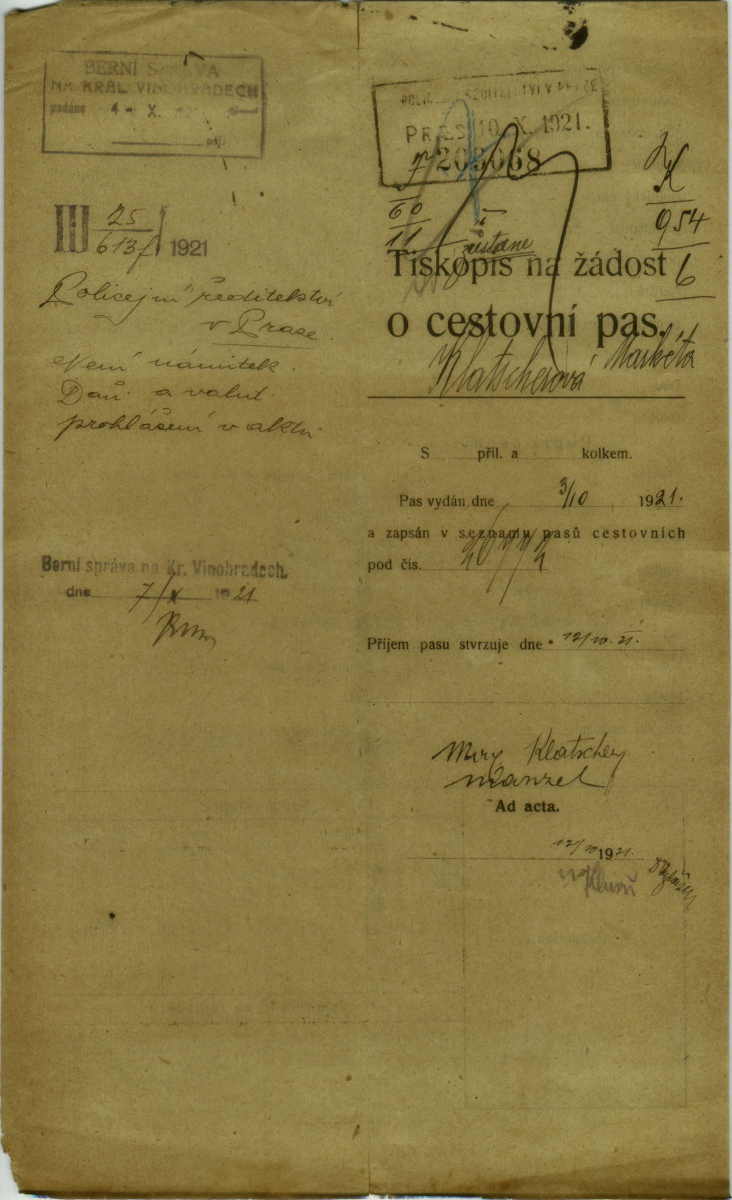 BERNÍ SPRÁVA
NA KRÁL. VINOHRADECH
podáno 4 - X.
III 25
613 / 1921
Policejní ředitelství
v Praze.
Není námitek.
Daň. a valut.
prohlášení v aktu
Berní správa na Kr. Vinohradech.
dne 7/X 1921
PRES. 10. X. 1921.
203068
K
60
11
954
6
zůstane
Tiskopis na žádost
o cestovní pas.
Klatscherová Markéta
S příl. a kolkem.
Pas vydán dne 3/10 1921.
a zapsán v seznamu pasů cestovních
pod čís.
Příjem pasu stvrzuje dne 12/10. 21.
Klatscher
manžel
Ad acta.
12/10 1921.